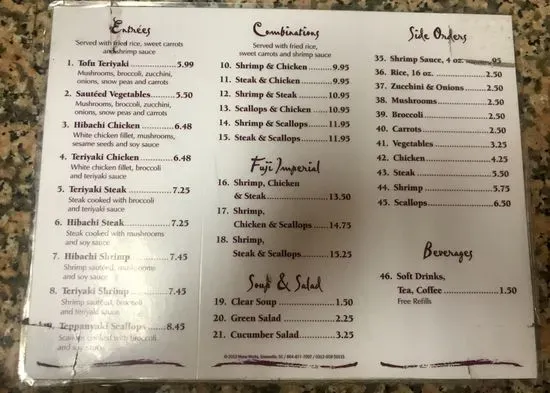 Entrées
Served with fried rice, sweet carrots
and shrimp sauce
1. Tofu Teriyaki 5.99
Mushrooms, broccoli, zucchini,
onions, snow peas and carrots
2. Sautéed Vegetables 5.50
Mushrooms, broccoli, zucchini,
onions, snow peas and carrots
3. Hibachi Chicken 6.48
White chicken fillet, mushrooms,
sesame seeds and soy sauce
4. Teriyaki Chicken 6.48
White chicken fillet, broccoli
and teriyaki sauce
5. Teriyaki Steak 7.25
Steak cooked with broccoli
and teriyaki sauce
6. Hibachi Steak 7.25
Steak cooked with mushrooms
and soy sauce
7. Hibachi Shrimp 7.45
Shrimp sautéed, mushrooms
and soy sauce
8. Teriyaki Shrimp 7.45
Shrimp sautéed, broccoli
and teriyaki sauce
Teppanyaki Scallops 8.45
Scallops cooked with broccoli
and soy sauce
Combinations
Served with fried rice,
sweet carrots and shrimp sauce
10. Shrimp & Chicken 9.95
11. Steak & Chicken 9.95
12. Shrimp & Steak 10.95
13. Scallops & Chicken 10.95
14. Shrimp & Scallops 11.95
15. Steak & Scallops 11.95
Fuji Imperial
16. Shrimp, Chicken
& Steak 13.50
17. Shrimp,
Chicken & Scallops 14.75
18. Shrimp,
Steak & Scallops 15.25
Soup & Salad
19. Clear Soup 1.50
20. Green Salad 2.25
21. Cucumber Salad 3.25
Side Orders
35. Shrimp Sauce, 4 oz. .95
36. Rice, 16 oz. 2.50
37. Zucchini & Onions 2.50
38. Mushrooms 2.50
39. Broccoli 2.50
40. Carrots 2.50
41. Vegetables 3.25
42. Chicken 4.25
43. Steak 5.50
44. Shrimp 5.75
45. Scallops 6.50
Beverages
46. Soft Drinks,
Tea, Coffee 1.50
Free Refills